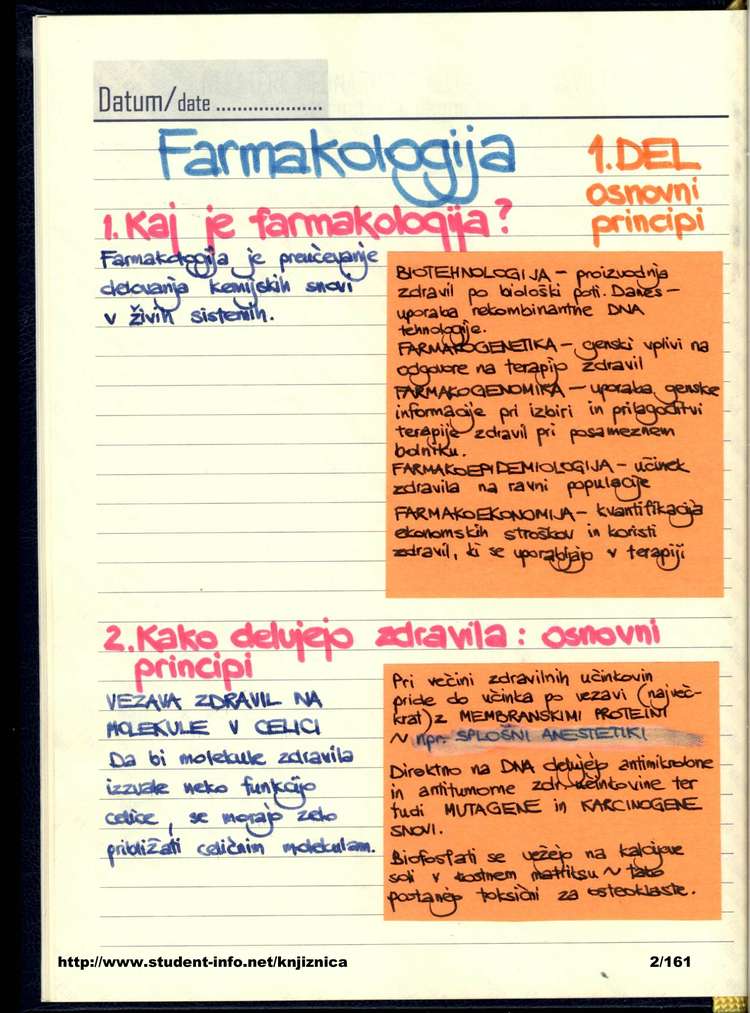 Datum/date ....................
Farmakologija
1. DEL
osnovni
principi
1. Kaj je farmakologija?
Farmakologija je preučevanje
delovanja kemijskih snovi
v živih sistemih.
BIOTEHNOLOGIJA – proizvodnja
zdravil po biološki poti. Danes –
uporaba rekombinantne DNA
tehnologije.
FARMAKOGENETIKA – genski vplivi na
odgovore na terapijo zdravil
FARMAKOGENOMIKA – uporaba genske
informacije pri izbiri in prilagoditvi
terapije zdravil pri posameznem
bolniku.
FARMAKOEPIDEMIOLOGIJA – učinek
zdravila na ravni populacije
FARMAKOEKONOMIJA – kvantifikacija
ekonomskih stroškov in koristi
zdravil, ki se uporabljajo v terapiji
2. Kako delujejo zdravila: osnovni
principi
VEZAVA ZDRAVIL NA
MOLEKULE V CELICI
Da bi molekule zdravila
izzvale neko funkcijo
celice, se morajo zelo
približati celičnim molekulam.
Pri večini zdravilnih učinkovin
pride do učinka po vezavi (največ-
krat) z MEMBRANSKIMI PROTEINI
~ npr. SPLOŠNI ANESTETIKI
Direktno na DNA delujejo antimikrobne
in antitumorne zdr. učinkovine ter
tudi MUTAGENE in KARCINOGENE
SNOVI.
Biofosfati se vežejo na kalcijeve
soli v kostnem matriksu ~ tako
postanejo toksični za osteoklaste.
http://www.student-info.net/knjiznica
2/161